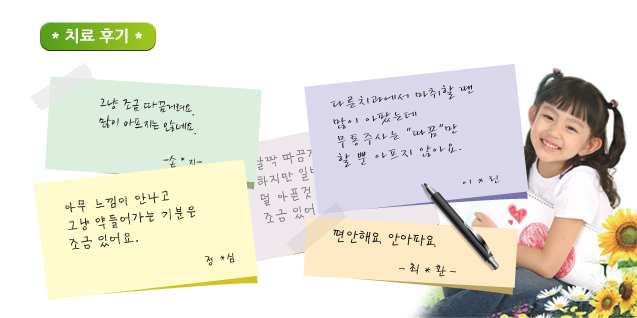 * 치료 후기 *
그냥 조금 따끔거려요.
많이 아프지는 않네요.
-손 * 지-
다른치과에서 마취할 땐
많이 아팠는데
무통주사는 "따끔"만
할 뿐 아프지 않아요.
이 * 린
살짝 따끔
하지만
덜 아픈것
조금 있어
아무 느낌이 안나고
그냥 약들어가는 기분은
조금 있어요.
정 *심
편안해요. 안아파요.
- 최 * 환 -